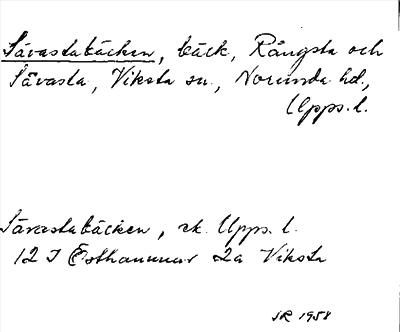 Sävastabäcken, bäck, Rångsta och
Sävasta, Viksta sn., Norunda hd.,
Upps. l.
Sävastabäcken, ek. Upps. l.
12 I Östhammar 2a Viksta
SR 1958